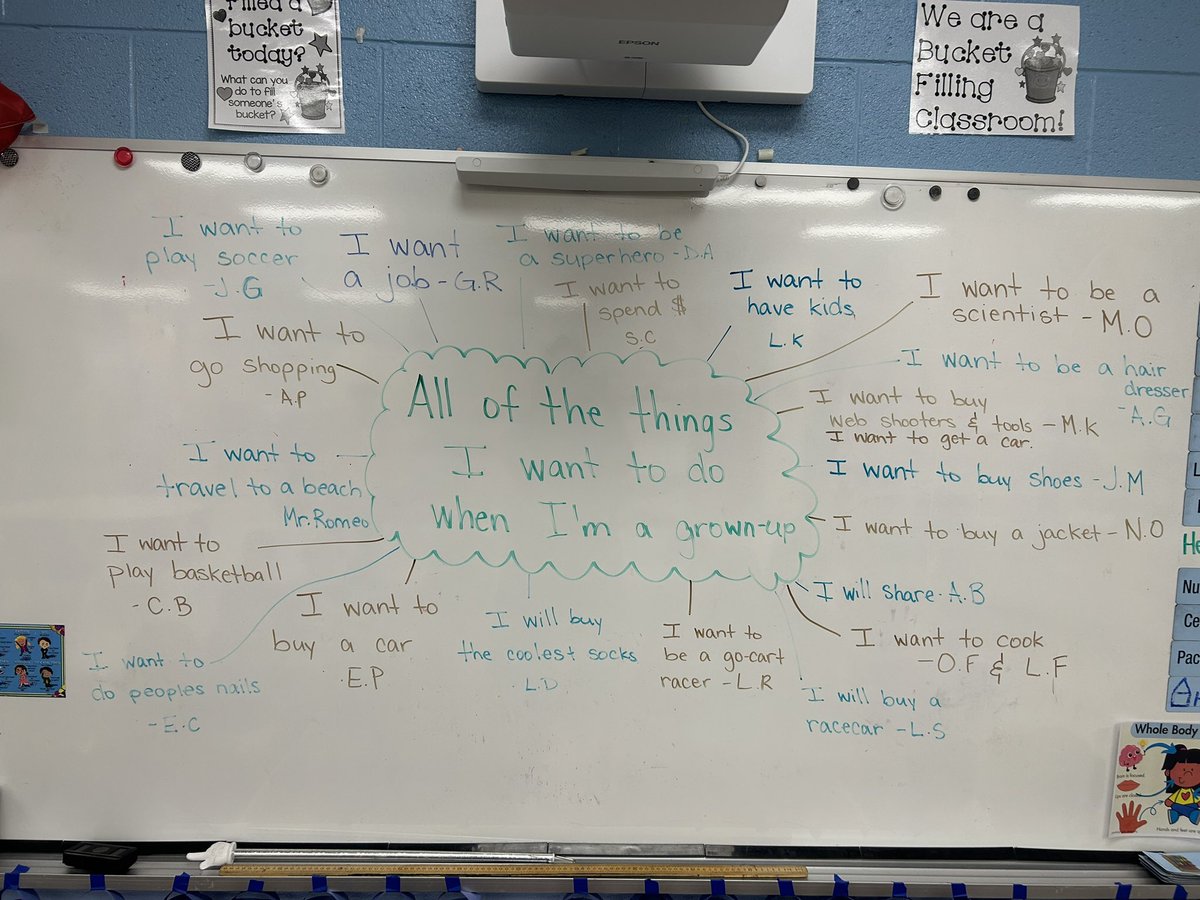 filled a
bucket
today?
What can you
do to fill
someone's
bucket?
EPSON
We are a
Bucket
Filling
Classroom!
I want to
play soccer
-J.G
I want
a job - G.R
I want to be
a superhero - D.A
I want to
spend $
S.C
I want to
have kids
L.K
I want to be a
scientist - M.O
I want to
go shopping
- A.P
I want to be a hair
dresser
- A.G
I want to buy
web shooters & tools - M.K
I want to get a car.
All of the things
I want to do
when I'm a grown-up
I want to
travel to a beach
Mr. Romeo
I want to buy shoes - J.M
I want to buy a jacket - N.O
I want to
play basketball
- C.B
I want to
buy a car
E.P
I will buy
the coolest socks
L.D
I want to
be a go-cart
racer - L.R
I will share - A.B
I want to cook
- O.F & L.F
I want to
do peoples nails
- E.C
I will buy a
racecar - L.S
He
Nu
Ce
Pac
Whole Body
Brain is focused.
Lips are closed
Hands and feet are